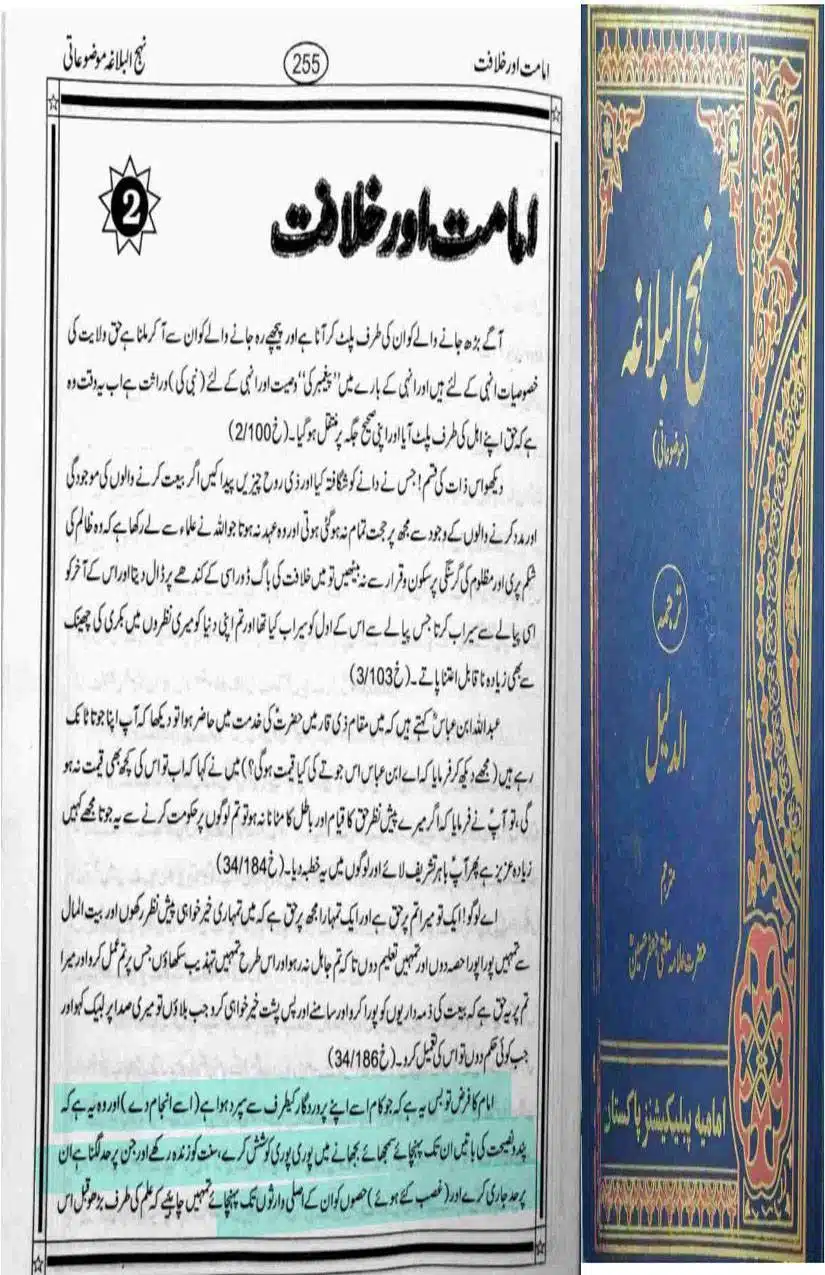 امامت اور خلافت
255
نہج البلاغہ موضوعاتی
امامت اور خلافت
2
آگے بڑھ جانے والے کو ان کی طرف پلٹ کر آنا ہے اور پیچھے رہ جانے والے کو ان سے آ کر ملنا ہے حق ولایت کی
خصوصیات انہی کے لئے ہیں اور انہی کے بارے میں ”پیغمبر کی“ وصیت اور انہی کے لئے (نبی کی) وراثت ہے اب یہ وقت وہ
ہے کہ حق اپنے اہل کی طرف پلٹ آیا اور اپنی صحیح جگہ پر منتقل ہو گیا۔ (خ2/100)
دیکھو اس ذات کی قسم! جس نے دانے کو شگافتہ کیا اور ذی روح چیزیں پیدا کیں اگر بیعت کرنے والوں کی موجودگی
اور مدد کرنے والوں کے وجود سے مجھ پر حجت تمام نہ ہو گئی ہوتی اور وہ عہد نہ ہوتا جو اللہ نے علماء سے لے رکھا ہے کہ وہ ظالم کی
شکم پری اور مظلوم کی گرسنگی پر سکون و قرار سے نہ بیٹھیں تو میں خلافت کی باگ ڈور اسی کے کندھے پر ڈال دیتا اور اس کے آخر کو
اسی پیالے سے سیراب کرتا جس پیالے سے اس کے اول کو سیراب کیا تھا اور تم اپنی دنیا کو میری نظروں میں بکری کی چھینک
سے بھی زیادہ ناقابل اعتنا پاتے۔ (خ3/103)
عبداللہ ابن عباسؓ کہتے ہیں کہ میں مقام ذی قار میں حضرتؑ کی خدمت میں حاضر ہوا تو دیکھا کہ آپ اپنا جوتا ٹانک
رہے ہیں (مجھے دیکھ کر فرمایا کہ اے ابن عباس اس جوتے کی کیا قیمت ہو گی؟) میں نے کہا کہ اب تو اس کی کچھ بھی قیمت نہ ہو
گی، تو آپؑ نے فرمایا کہ اگر میرے پیش نظر حق کا قیام اور باطل کا مٹانا نہ ہو تو تم لوگوں پر حکومت کرنے سے یہ جوتا مجھے کہیں
زیادہ عزیز ہے پھر آپؑ باہر تشریف لائے اور لوگوں میں یہ خطبہ دیا۔ (خ34/184)
اے لوگو! ایک تو میرا تم پر حق ہے اور ایک تمہارا مجھ پر حق ہے کہ میں تمہاری خیر خواہی پیش نظر رکھوں اور بیت المال
سے تمہیں پورا پورا حصہ دوں اور تمہیں تعلیم دوں تا کہ تم جاہل نہ رہو اور اس طرح تمہیں تہذیب سکھاؤں جس پر تم عمل کرو اور میرا
تم پر یہ حق ہے کہ بیعت کی ذمہ داریوں کو پورا کرو اور سامنے اور پس پشت خیر خواہی کرو جب بلاؤں تو میری صدا پر لبیک کہو اور
جب کوئی حکم دوں تو اس کی تعمیل کرو۔ (خ34/186)
امام کا فرض تو بس یہ ہے کہ جو کام اسے اپنے پروردگار کیطرف سے سپرد ہوا ہے (اسے انجام دے) اور وہ یہ ہے کہ
پند و نصیحت کی باتیں ان تک پہنچائے سمجھانے بجھانے میں پوری پوری کوشش کرے، سنت کو زندہ رکھے اور جن پر حد لگنا ہے ان
پر حد جاری کرے اور (غصب کئے ہوئے) حصوں کو ان کے اصلی وارثوں تک پہنچائے تمہیں چاہیئے کہ علم کی طرف بڑھو قبل اس
نہج البلاغہ
(موضوعاتی)
ترجمہ
الدلیل
مترجم
حضرت علامہ مفتی جعفر حسینؒ
امامیہ پبلیکیشنز پاکستان